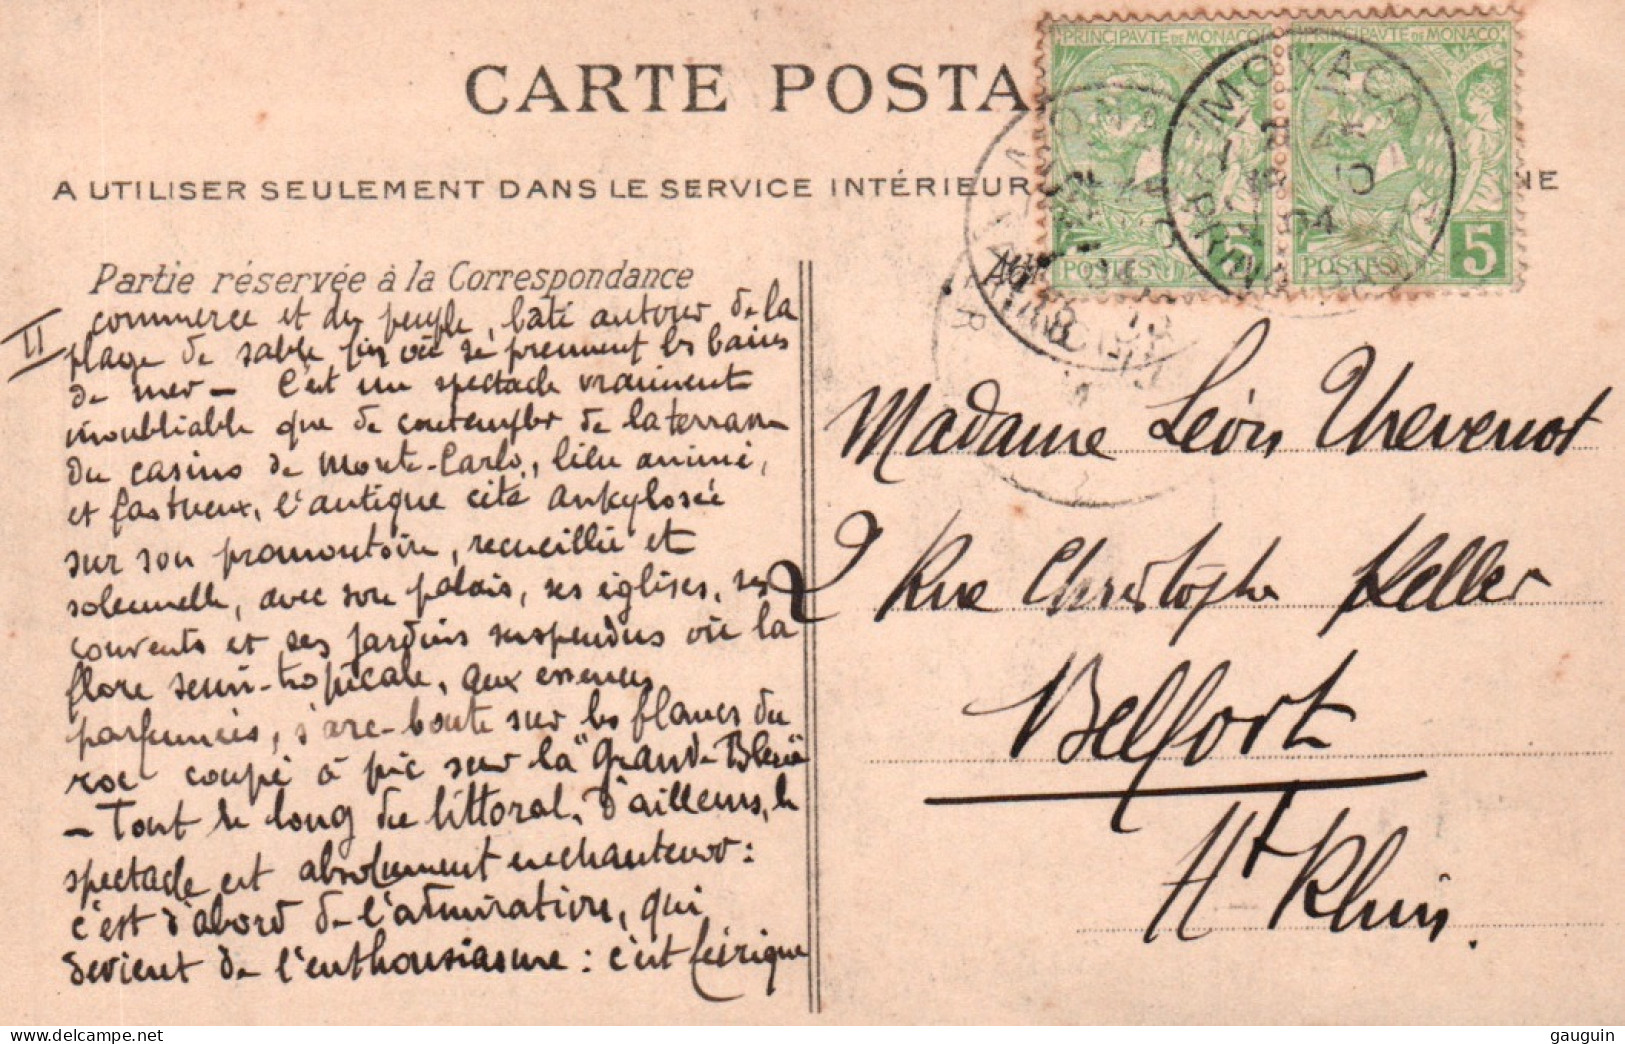 CARTE POSTA
A UTILISER SEULEMENT DANS LE SERVICE INTÉRIEUR
NE
PRINCIPAVTE DE MONACO
PRINCIPAVTE DE MONACO
5
5
POSTES
POSTES
MONACO
04
Partie réservée à la Correspondance
II
commerce et du peuple, bâti autour de la
plage de sable fin où se prennent les bains
de mer — C'est un spectacle vraiment
inoubliable que de contempler de la terrasse
du casino de Monte-Carlo, lieu animé,
et fastueux, l'antique cité ankylosée
sur son promontoire, recueillie et
solennelle, avec son palais, ses églises, ses
couvents et ses jardins suspendus où la
flore semi-tropicale, aux essences
parfumées, s'arc-boute sur les flancs du
roc coupé à pic sur la "Grande Bleue"
— Tout le long du littoral, d'ailleurs, le
spectacle est absolument enchanteur :
c'est d'abord de l'admiration, qui
devient de l'enthousiasme : c'est féerique
Madame Léon Thevenot
2 Rue Christophe Keller
Belfort
Ht Rhin.
gauguin